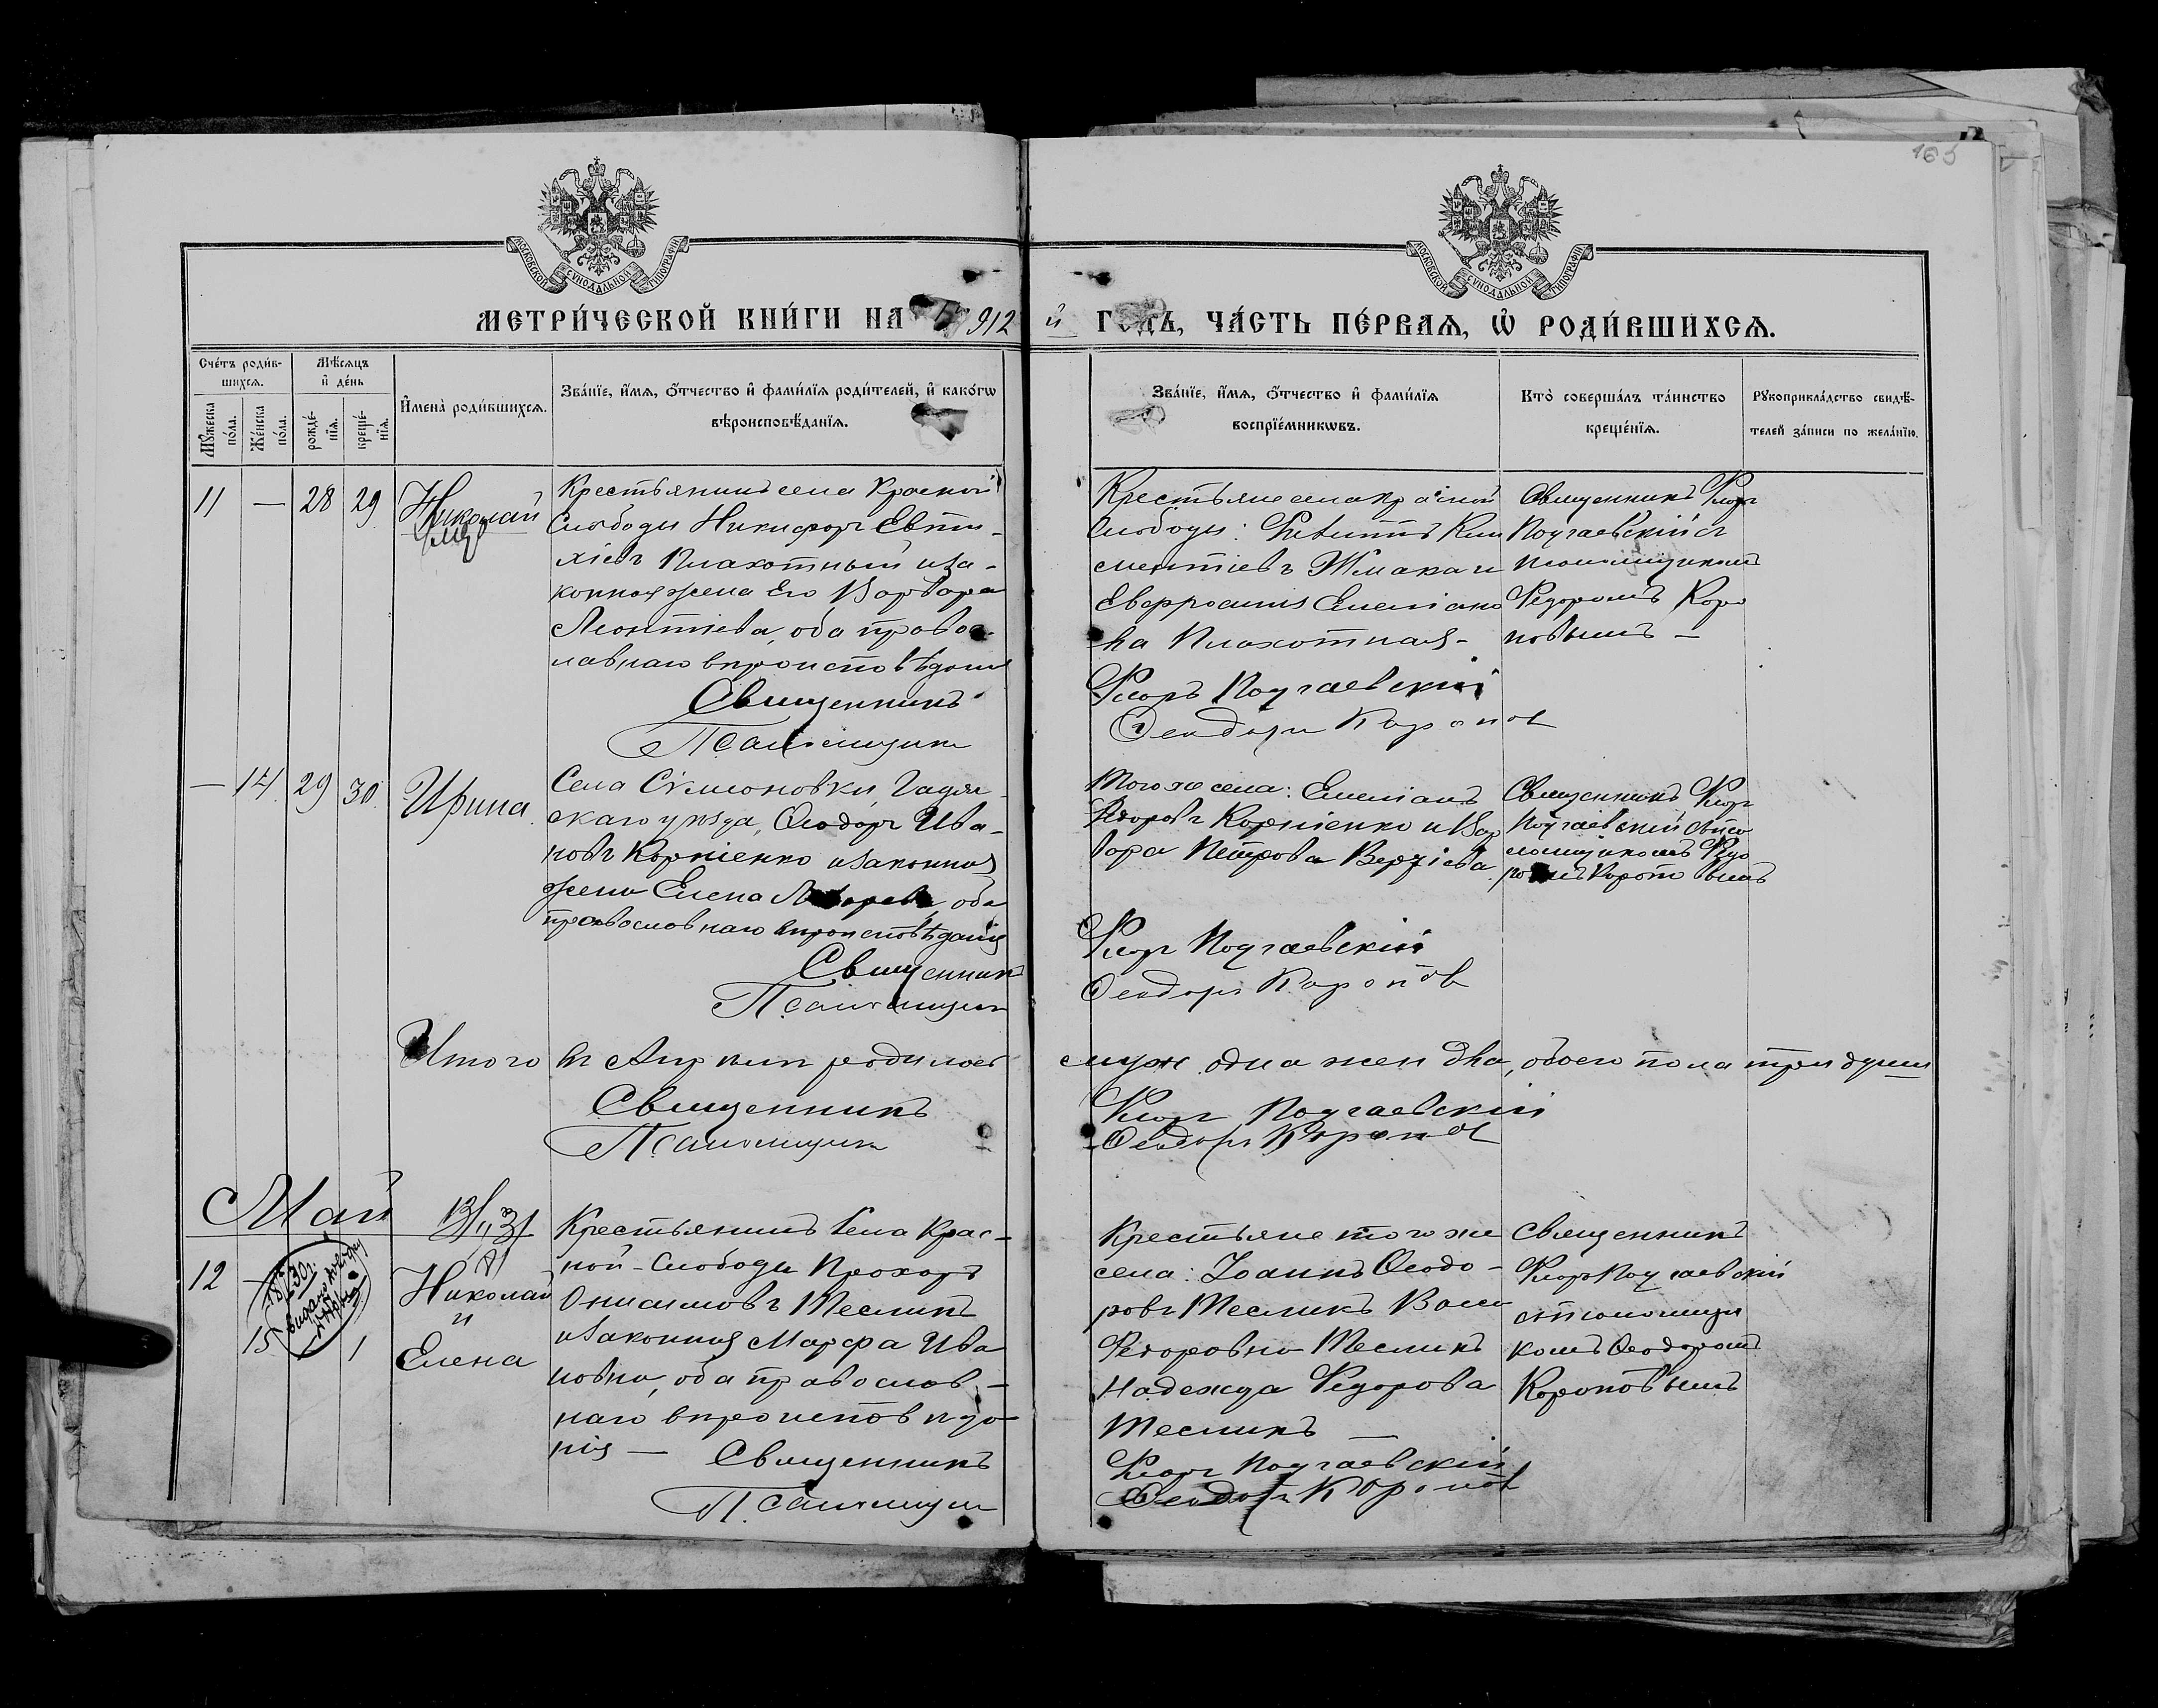 165
МОСКОВСКОЙ СѴНОДАЛЬНОЙ ТИПОГРАФІИ
МОСКОВСКОЙ СѴНОДАЛЬНОЙ ТИПОГРАФІИ
МЕТРИ́ЧЕСКОЙ КНИ́ГИ НА 1912 й ГОДЪ, ЧА́СТЬ ПЕ́РВАѦ, Ѡ҆ РОДИ́ВШИХСѦ.
Сче́тъ роди́в-
шихсѧ.
Мꙋ́жеска
по́ла.
Же́нска
по́ла.
Мѣ́сѧцъ
и҆ де́нь
рожде́-
нїѧ.
креще́-
нїѧ.
И҆мена̀ роди́вшихсѧ.
Зва́нїе, и҆́мѧ, ѻ҆́тчество и҆ фами́лїѧ роди́телей, и҆ како́гѡ
вѣроисповѣ́данїѧ.
Зва́нїе, и҆́мѧ, ѻ҆́тчество и҆ фами́лїѧ
воспрїе́мникѡвъ.
Кто̀ соверша́лъ та́инство
креще́нїѧ.
Рꙋкоприкла́дство свидѣ́-
телей за́писи по жела́нїю.
11 — 28 29 Николай
Крестьянинъ села Красной
Слободы Никифоръ Евти-
хіевъ Плахотный и за-
конная жена его Варвара
Леонтіева, оба право-
славнаго вѣроисповѣданія
Священникъ
Псаломщикъ
Крестьяне села Красной
Слободы: Кли
ментіевъ Жмакъ и
Евфросинія Емеліано
ва Плахотная —
Флоръ Подгаевскій
Феодоръ Коропов
Священникъ Флоръ
Подгаевскій съ
псаломщикомъ
Федоромъ Коро
повымъ —
— 14 29 30 Ирина
Села Сѵмоновки, Гадяч-
скаго уѣзда, Феодоръ Ива-
новъ Корніенко и законная
жена Елена оба
православнаго вѣроисповѣданія
Священникъ
Псаломщикъ
Того же села: Емеліанъ
Федоровъ Корніенко и Вар
вара Петрова
Флоръ Подгаевскій
Феодоръ Коропов
Священникъ Флоръ
Подгаевскій съ пса
ломщикомъ Федо
ромъ Коропо вымъ
Итого въ Апрѣлѣ родилось муж. одна жен два, обоего пола три души
Священникъ Флоръ Подгаевскій
Псаломщикъ Феодоръ Коропов
Май
12 — Николай
и
15 1 Елена
Крестьянинъ села Крас-
ной-Слободы Прохоръ
Онисимовъ Тесликъ
и законная Марфа Ива
новна, оба православ-
наго вѣроисповѣда-
нія —
Священникъ
Псаломщикъ
Крестьяне того же
села: Іоаннъ Феодо-
ровъ Тесликъ
Федоровна Тесликъ
Надежда Федорова
Тесликъ —
Флоръ Подгаевскій
Феодоръ Коропов
Священникъ
Флоръ Подгаевскій
съ псаломщи
комъ Феодоромъ
Короповымъ